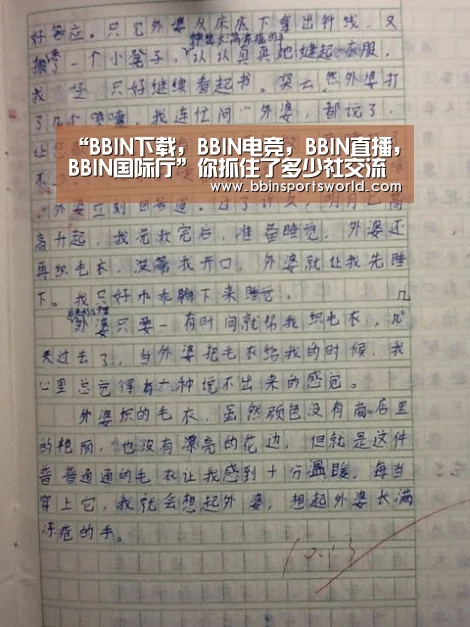 好答应。只见外婆从床底下拿出针线，又
搬了一个小凳子，认认真真地缝起衣服，
我 只好继续看起书。突然外婆打
了几个喷嚏，我连忙问“外婆，都说了
“BBIN下载，BBIN电竞，BBIN直播，
BBIN国际厅”你抓住了多少社交流
www.bbinsportsworld.com
外婆立刻回答道。过了许久，明月已高
高升起，我先我完后，准备睡觉，外婆还
再织毛衣，没等我开口，外婆就让我先睡
下。我只好 下来睡觉。 几
外婆只要一有时间就帮我织毛衣，几
天过去了，当外婆把毛衣给我的时候，我
心里总觉得有一种说不出来的感觉。
外婆织的毛衣，虽然颜色没有商店里
的艳丽，也没有漂亮的花边，但就是这件
普普通通的毛衣让我感到十分温暖，每当
穿上它，我就会想起外婆，想起外婆长满
冻疮的手。
10.13